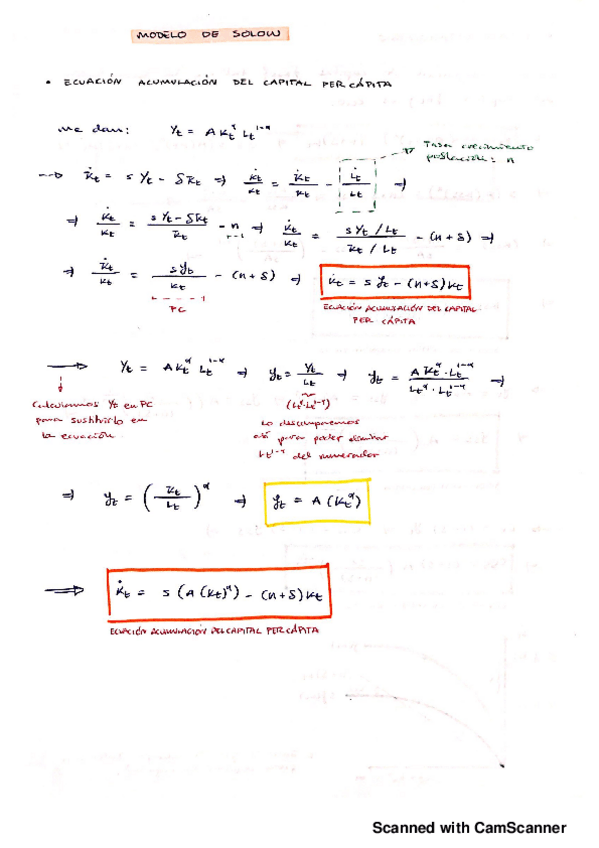 MODELO DE SOLOW
• ECUACIÓN ACUMULACIÓN DEL CAPITAL PER CÁPITA
me dan: Yt = A Kt^α Lt^1-α
Tasa crecimiento
población: n
→ K̇t = s Yt - δKt ⇒ k̇t/kt = K̇t/Kt - L̇t/Lt ⇒
⇒ k̇t/kt = (sYt - δKt)/Kt - n ⇒ k̇t/kt = (sYt/Lt)/(Kt/Lt) - (n+δ) ⇒
⇒ k̇t/kt = syt/kt - (n+δ) ⇒ k̇t = s yt - (n+δ)kt
PC
ECUACIÓN ACUMULACIÓN DEL CAPITAL
PER CÁPITA
→ Yt = A Kt^α Lt^1-α ⇒ yt = Yt/Lt ⇒ yt = (A Kt^α · Lt^1-α)/(Lt^α · Lt^1-α) ⇒
Calculamos Yt en PC
para sustituirlo en
la ecuación
(Lt^α·Lt^1-α)
Lo descomponemos
así para poder eliminar
Lt^1-α del numerador
⇒ yt = (Kt/Lt)^α ⇒ yt = A(kt^α)
⇒ k̇t = s(A(kt)^α) - (n+δ)kt
ECUACIÓN ACUMULACIÓN DEL CAPITAL PER CÁPITA
Scanned with CamScanner